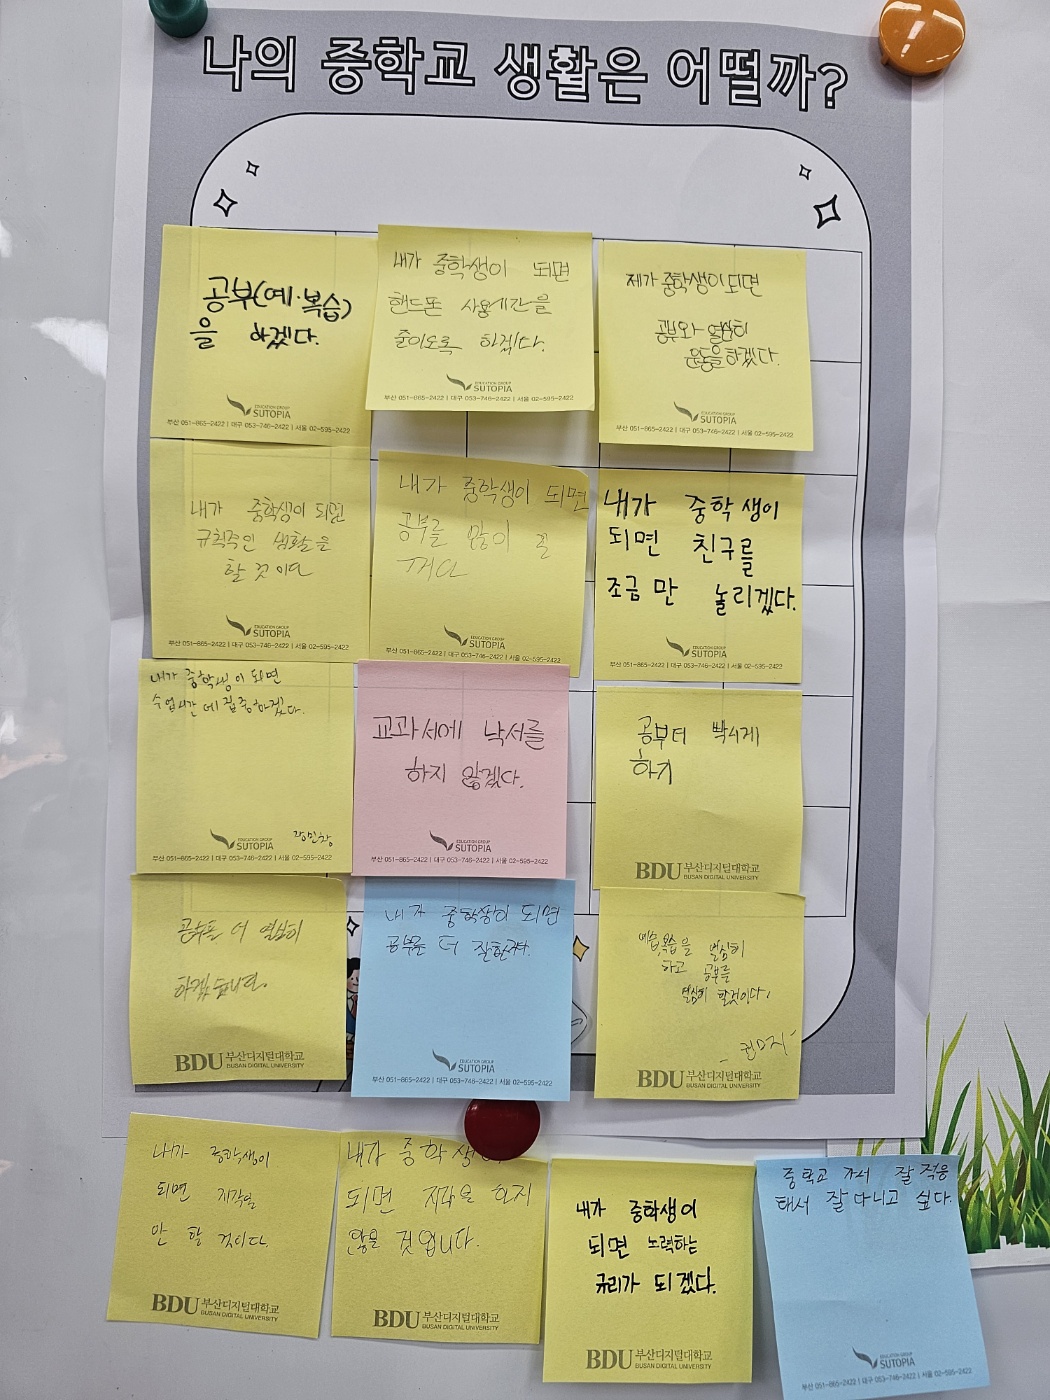 나의 중학교 생활은 어떨까?
공부(예·복습)
을 하겠다.
EDUCATION GROUP
SUTOPIA
부산 051-865-2422 | 대구 053-746-2422 | 서울 02-595-2422
내가 중학생이 되면
핸드폰 사용시간을
줄이도록 하겠다.
EDUCATION GROUP
SUTOPIA
부산 051-865-2422 | 대구 053-746-2422 | 서울 02-595-2422
제가 중학생이 되면
공부와 열심히
운동을 하겠다.
EDUCATION GROUP
SUTOPIA
부산 051-865-2422 | 대구 053-746-2422 | 서울 02-595-2422
내가 중학생이 되면
규칙적인 생활을
할 것이다
EDUCATION GROUP
SUTOPIA
부산 051-865-2422 | 대구 053-746-2422 | 서울 02-595-2422
내가 중학생이 되면
공부를 많이 할
꺼다
EDUCATION GROUP
SUTOPIA
부산 051-865-2422 | 대구 053-746-2422 | 서울 02-595-2422
내가 중학생이
되면 친구를
조금만 놀리겠다.
EDUCATION GROUP
SUTOPIA
부산 051-865-2422 | 대구 053-746-2422 | 서울 02-595-2422
내가 중학생이 되면
수업시간에 집중하겠다.
EDUCATION GROUP
SUTOPIA
부산 051-865-2422 | 대구 053-746-2422 | 서울 02-595-2422
교과서에 낙서를
하지 않겠다.
EDUCATION GROUP
SUTOPIA
부산 051-865-2422 | 대구 053-746-2422 | 서울 02-595-2422
공부더 빡시게
하기
BDU 부산디지털대학교
BUSAN DIGITAL UNIVERSITY
공부를 더 열심히
하겠습니다.
BDU 부산디지털대학교
BUSAN DIGITAL UNIVERSITY
내가 중학생이 되면
공부를 더 잘한다.
EDUCATION GROUP
SUTOPIA
부산 051-865-2422 | 대구 053-746-2422 | 서울 02-595-2422
예습,복습을 열심히
하고 공부를
열심히 할것이다.
BDU 부산디지털대학교
BUSAN DIGITAL UNIVERSITY
내가 중학생이
되면 지각을
안 할 것이다.
BDU 부산디지털대학교
BUSAN DIGITAL UNIVERSITY
내가 중학생
되면 지각을 하지
않을 것입니다.
BDU 부산디지털대학교
BUSAN DIGITAL UNIVERSITY
내가 중학생이
되면 노력하는
규리가 되겠다.
BDU 부산디지털대학교
BUSAN DIGITAL UNIVERSITY
중학교 가서 잘 적응
해서 잘 다니고 싶다.
EDUCATION GROUP
SUTOPIA
부산 051-865-2422 | 대구 053-746-2422 | 서울 02-595-2422